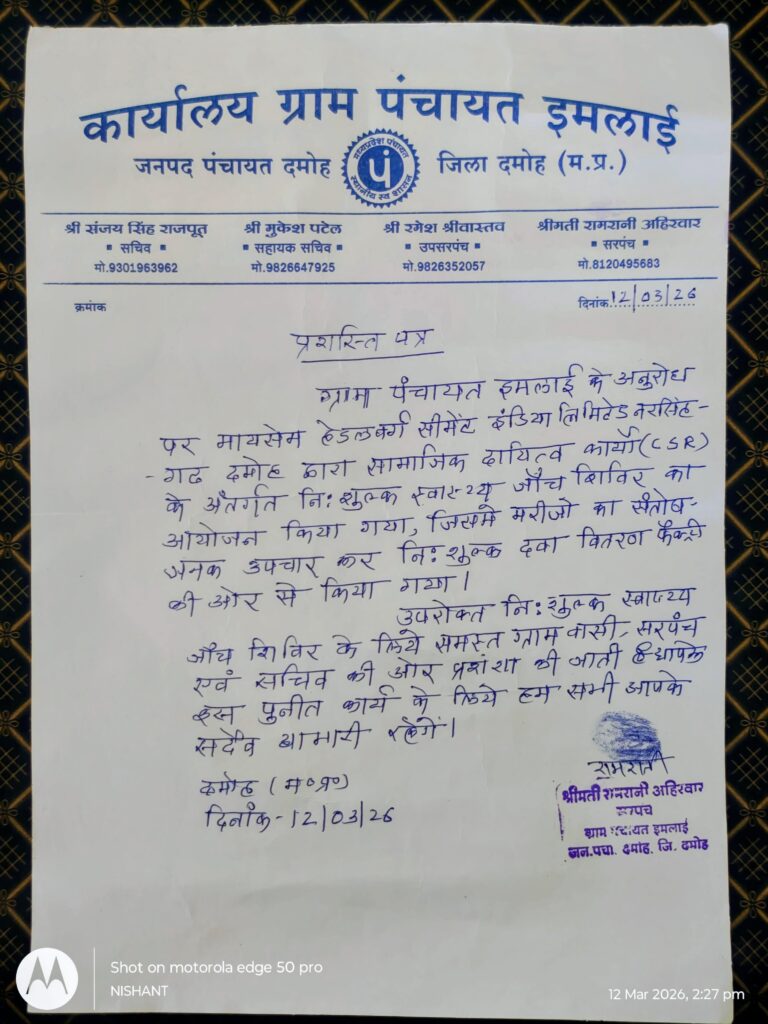 कार्यालय ग्राम पंचायत इमलाई
जनपद पंचायत दमोह
मध्यप्रदेश पंचायत
पं
स्थानीय स्व शासन
जिला दमोह (म.प्र.)
श्री संजय सिंह राजपूत
▪ सचिव ▪
मो.9301963962
श्री मुकेश पटेल
▪ सहायक सचिव ▪
मो.9826647925
श्री रमेश श्रीवास्तव
▪ उपसरपंच ▪
मो.9826352057
श्रीमती रामरानी अहिरवार
▪ सरपंच ▪
मो.8120495683
क्रमांक
दिनांक 12/03/26
प्रशस्ति पत्र
ग्राम पंचायत इमलाई के अनुरोध
पर मायसेम हेडलबर्ग सीमेंट इंडिया लिमिटेड नरसिंह-
-गढ दमोह द्वारा सामाजिक दायित्व कार्यो (CSR)
के अंतर्गत नि:शुल्क स्वास्थ्य जाँच शिविर का
आयोजन किया गया, जिसमे मरीजो का संतोष-
जनक उपचार कर नि:शुल्क दवा वितरण फैक्ट्री
की ओर से किया गया।
उपरोक्त नि:शुल्क स्वास्थ्य
जाँच शिविर के लिये समस्त ग्राम वासी, सरपंच
एवं सचिव की ओर प्रशंशा की जाती है आपके
इस पुनीत कार्य के लिये हम सभी आपके
सदैव आभारी रहेगें।
दमोह (म०प्र०)
दिनांक - 12/03/26
रामरानी
श्रीमती रामरानी अहिरवार
सरपंच
ग्राम पंचायत इमलाई
जन.पंचा. दमोह, जि. दमोह
Shot on motorola edge 50 pro
NISHANT
12 Mar 2026, 2:27 pm